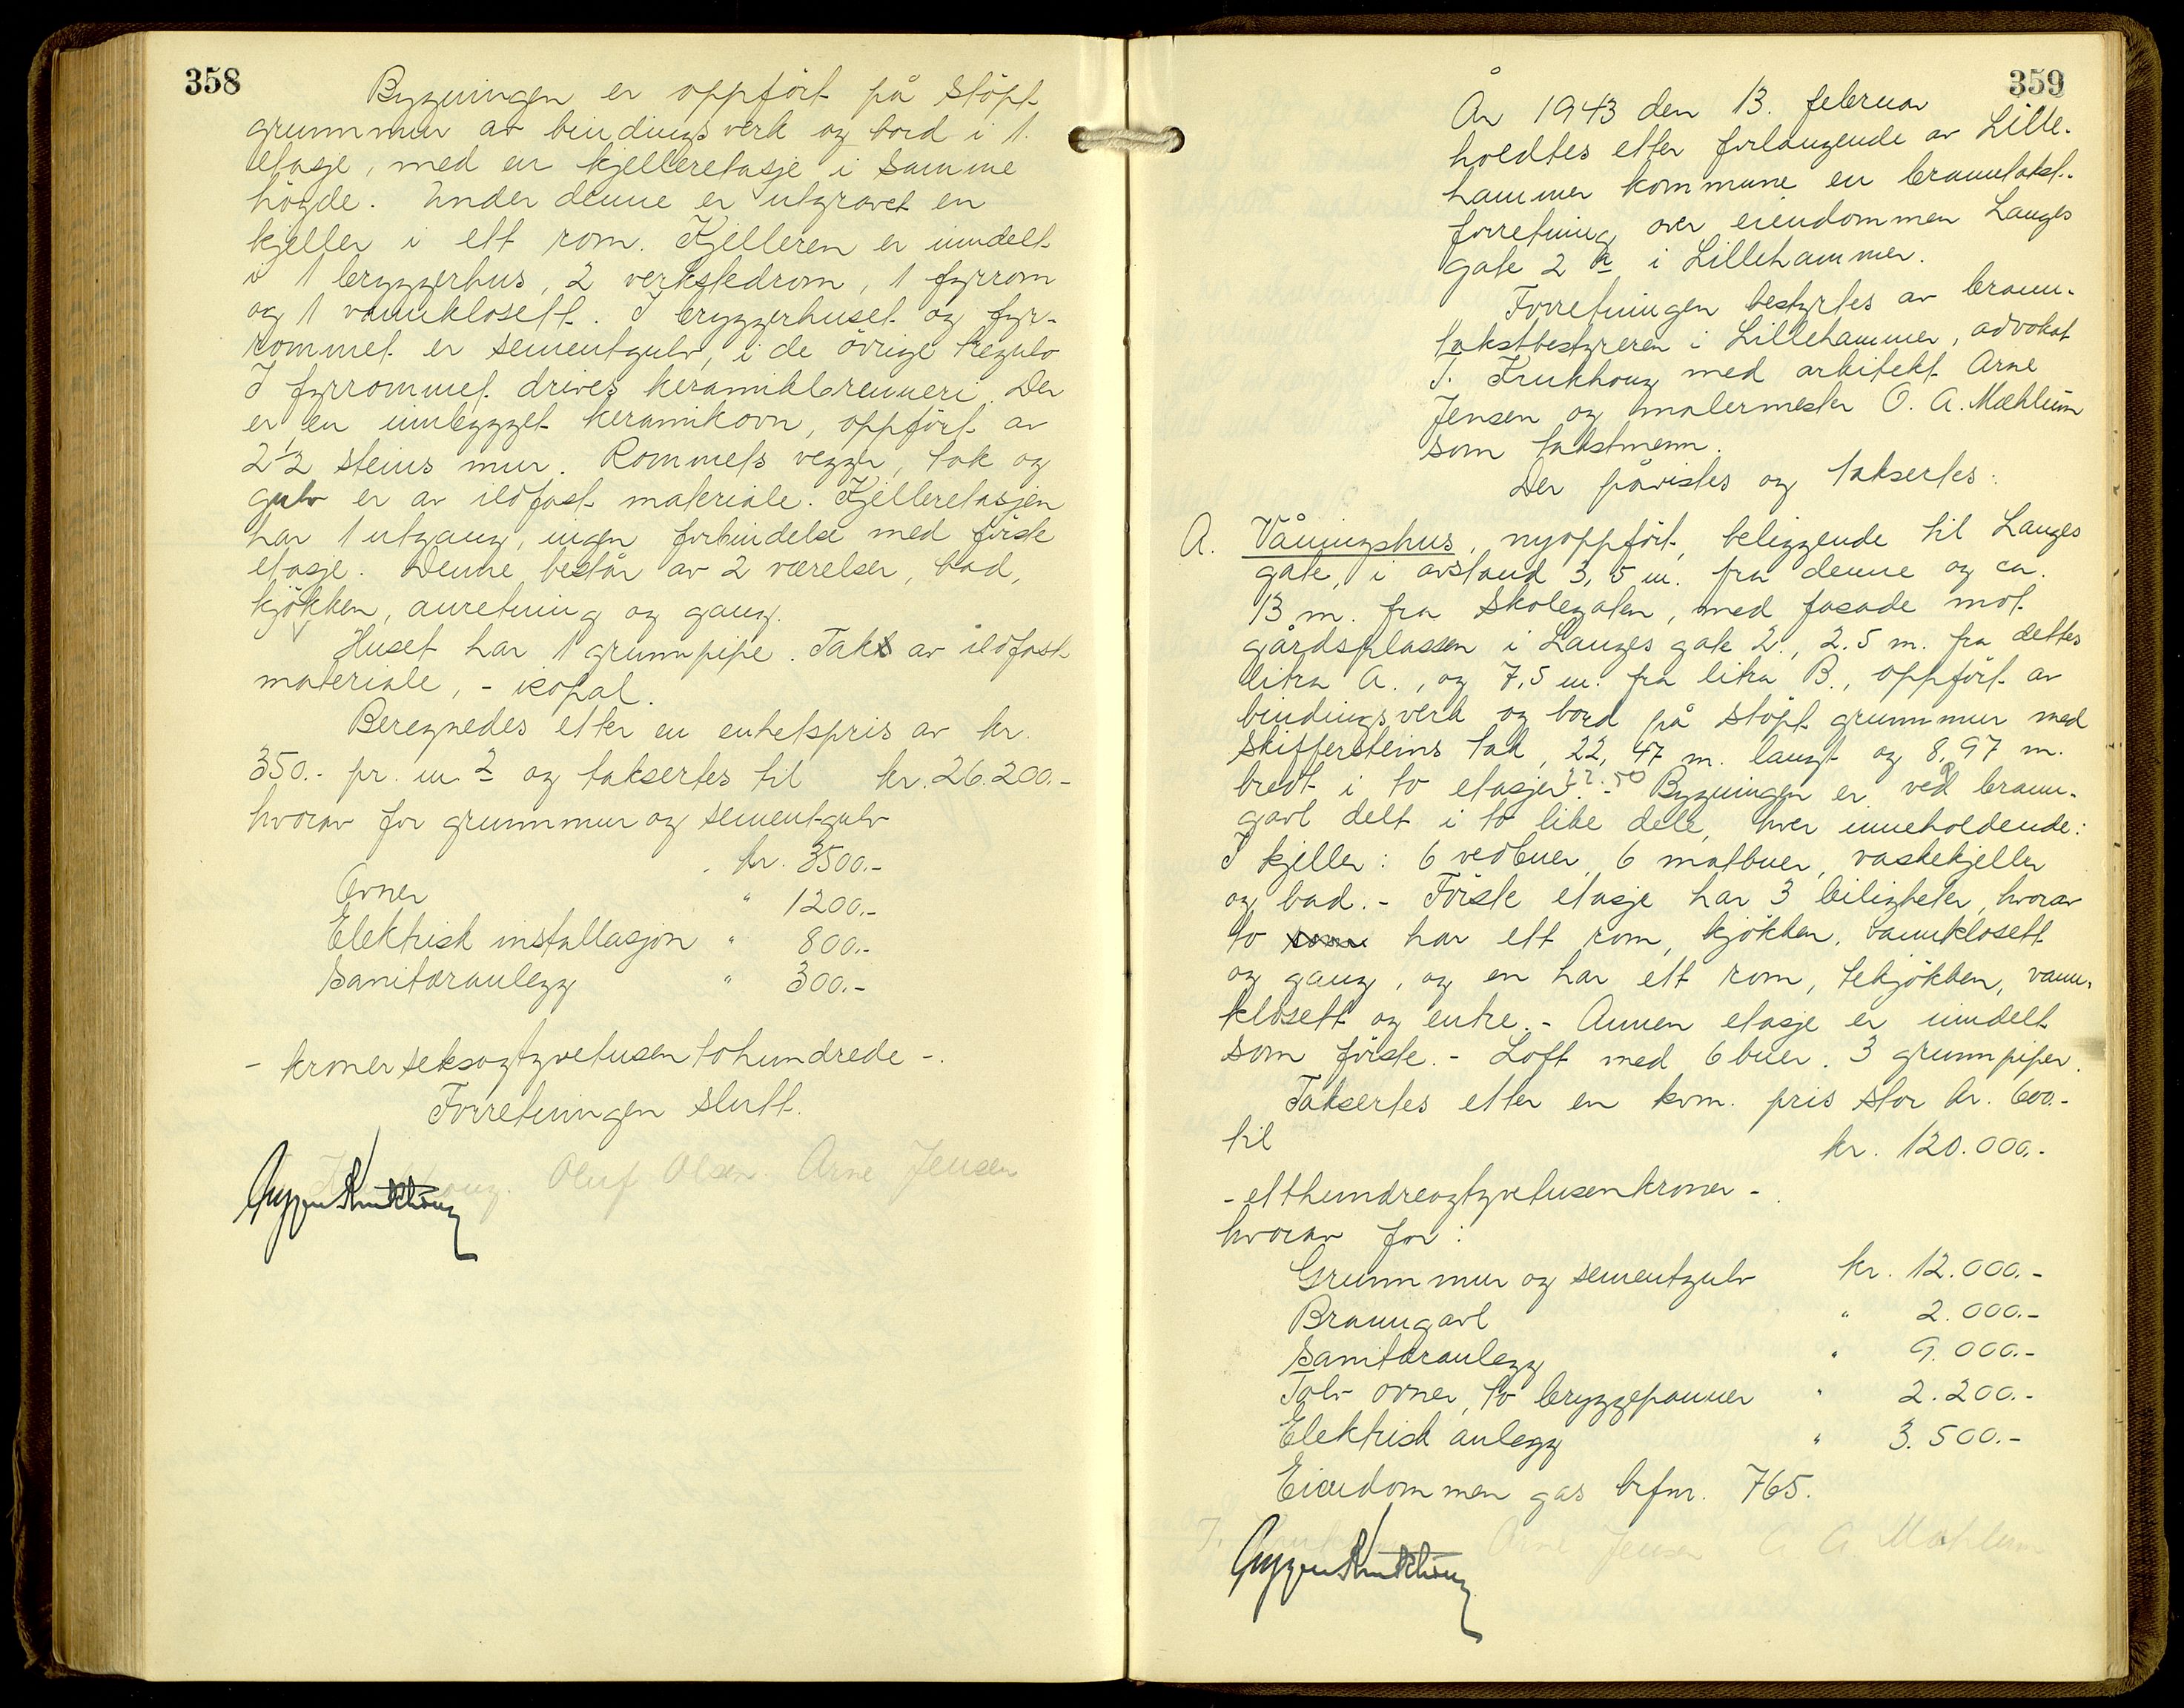 358
Bygningen er oppført på støpt
grunnmur av bindingsverk og bord i 1.
etasje, med en kjelleretasje i samme
høyde. Under denne er utgravet en
kjeller i ett rom. Kjelleren er inndelt
i 1 bryggerhus, 2 verkstedrom, 1 fyrrom
og 1 vannklosett. I bryggerhuset og fyr-
rommet er sementgulv, i de övrige tregulv
I fyrrommet drives keramikbrenneri. Der
er en innlegget keramikovn, oppført av
2 1/2 steins mur. Rommets vegger, tak og
gulv er av ildfast materiale. Kjelleretasjen
har 1 utgang, ingen forbindelse med første
etasje. Denne består av 2 værelser, bad,
kjøkken, anretning og gang.
Huset har 1 grunnpipe. Tak av ildfast
materiale, - icopal.
Beregnedes etter en enhetspris av kr.
350.- pr. m 2 og taksertes til kr. 26.200.-
hvorav for grunnmur og sementgulv
kr. 3500.-
Ovner " 1200.-
Elektrisk installasjon " 800.-
Sanitæranlegg " 300.-
- kroner seksogtyvetusen tohundrede -.
Forretningen slutt.
Oluf Olsen Arne Jensen
359
År 1943 den 13. februar
holdtes etter forlangende av Lille-
hammer kommune en branntakst-
forretning over eiendommen Langes
gate 2 a i Lillehammer.
Forretningen bestyrtes av brann-
takstbestyreren i Lillehammer, advokat
T. Krukhoug med arkitekt Arne
Jensen og malermester O. A. Mæhlum
som takstmenn.
Der påvistes og taksertes:
A. Våningshus, nyoppført, beliggende til Langes
gate, i avstand 3,5 m. fra denne og ca.
13 m. fra Skolegaten, med fasade mot
gårdsplassen i Langes gate 2., 2.5 m. fra dettes
litra A., og 7,5 m. fra litra B., oppført av
bindingsverk og bord på støpt grunnmur med
skiffersteins tak, 22,47 m. langt og 8,97 m.
bredt i to etasjer. - Bygningen er ved brann-
gavl delt i to like dele, hver inneholdende:
I kjeller: 6 vedbuer, 6 matbuer, vaskekjeller
og bad. - Første etasje har 3 leiligheter, hvorav
to har ett rom, kjøkken, vannklosett
og gang, og en har ett rom, tekjøkken, vann-
klosett og entre. - Annen etasje er inndelt
som første. - Loft med 6 buer. 3 grunnpiper.
Taksertes etter en kvm. pris stor kr. 600.-
til kr. 120.000.-
- etthundreogtyvetusenkroner -.
hvorav for:
Grunnmur og sementgulv kr. 12.000.-
Branngavl " 2.000.-
Sanitæranlegg " 9.000.-
Tolv ovner, to bryggepanner " 2.200.-
Elektrisk anlegg " 3.500.-
Eiendommen gas brfnr. 765.
Arne Jensen O A Mæhlum